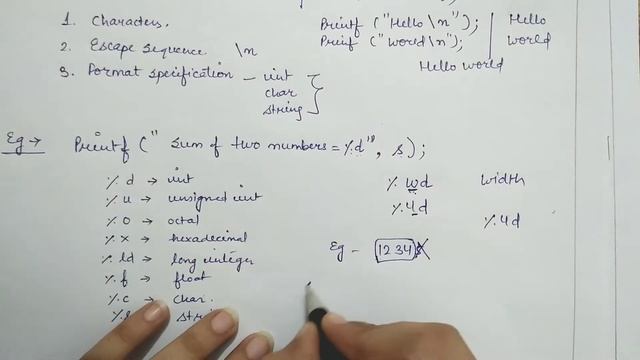 1. Characters. Printf ("Hello \n"); Hello
2. Escape sequence \n Prinf ("World\n"); World
Hello world
3. Format specification - int
char
string
Eg → Printf (" Sum of two numbers = %d", s);
% d → int % wd width
% u → unsigned int % 4d
% o → octal % 4d
% x → hexadecimal
% ld → long integer Eg - 1234
% f → float
% c → char.